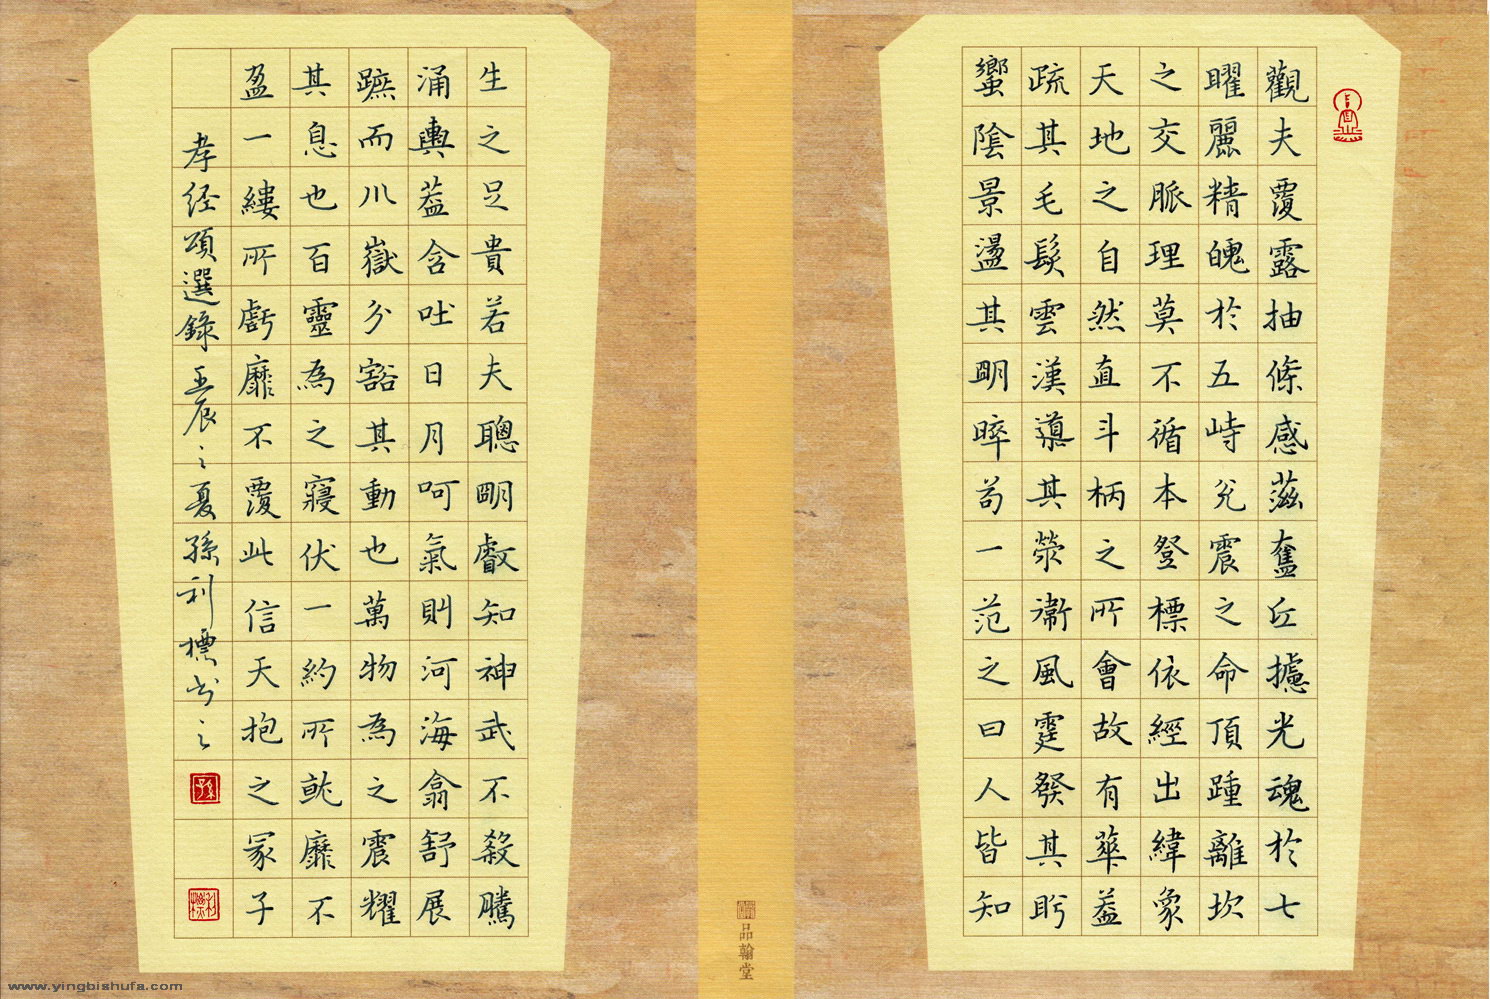 觀夫覆露抽條感滋奮丘攄光魂於七
曜麗精魄於五峙兊震之命頂踵離坎
之交脈理莫不循本豋標依經出緯象
天地之自然直斗柄之所會故有華蓋
疏其毛髮雲漢導其滎衛風霆發其盻
蠁陰景盪其明晬茍一范之曰人皆知
生之足貴若夫聰明叡知神武不殺騰
涌輿蓋含吐日月呵氣則河海翕舒展
蹠而川嶽分豁其動也萬物為之震耀
其息也百靈為之寢伏一約所就靡不
盈一縷所虧靡不覆此信天抱之冢子
孝经頌選錄 壬辰之夏孫利標书之
品翰堂
www.yingbishufa.com